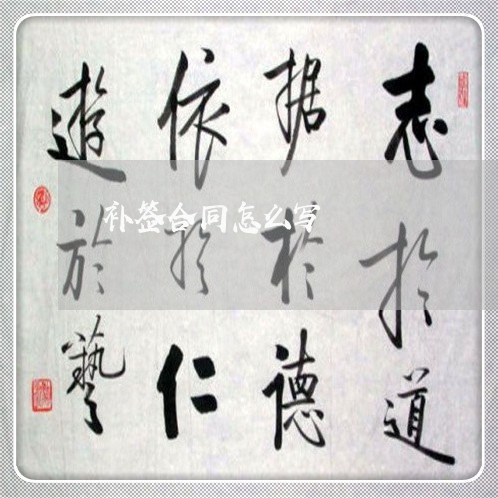 志於道
据於德
依於仁
遊於藝
补签合同怎么写